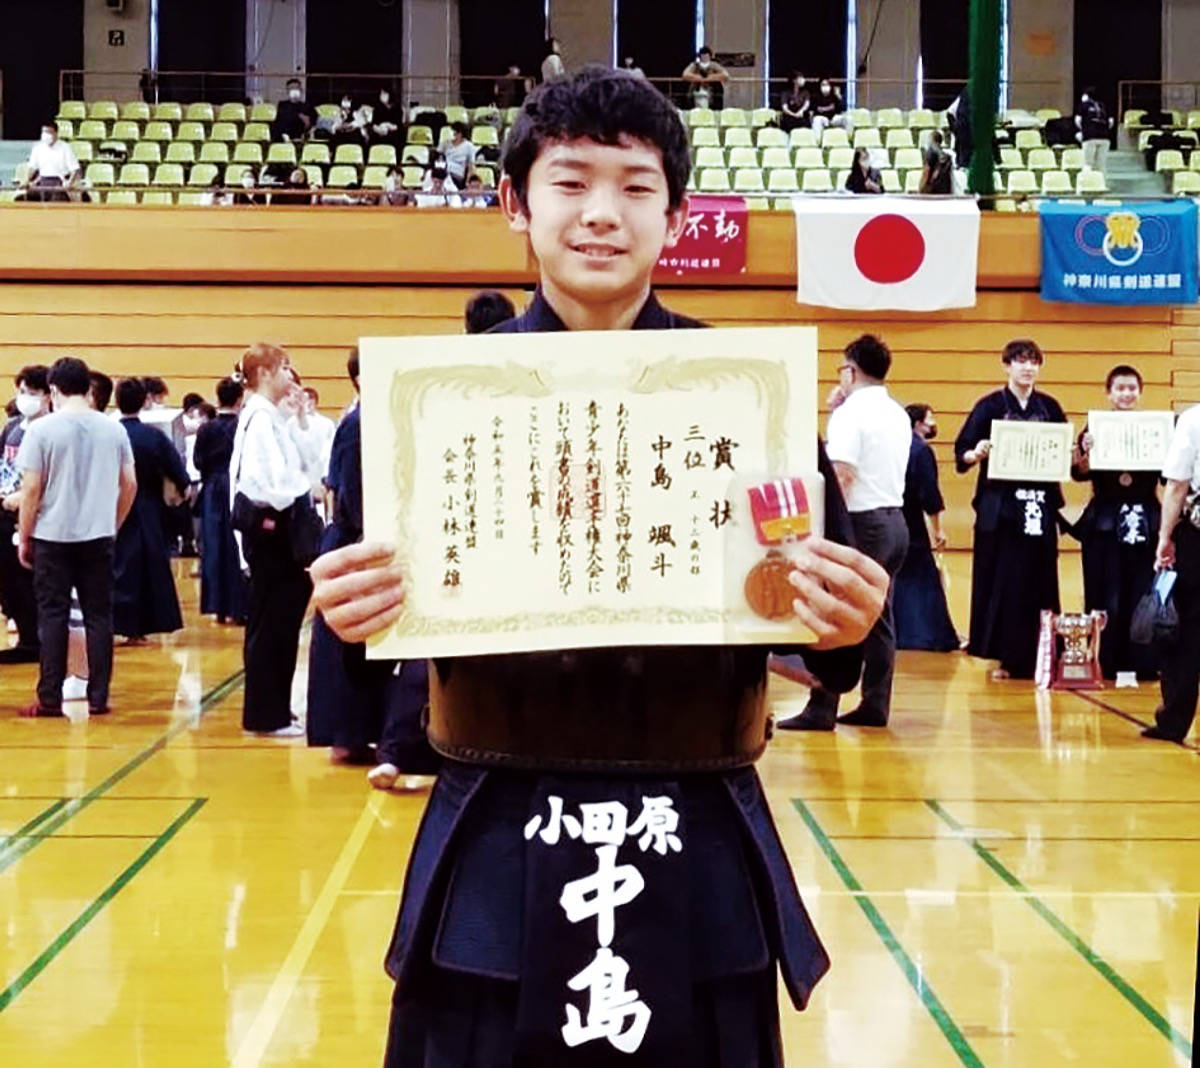 賞状
三位 男 十三歳の部
中島 颯斗
あなたは第六十七回神奈川県
青少年剣道選手権大会に
おいて頭書の成績を収めたので
ここにこれを賞します
令和五年九月二十四日
神奈川県剣道連盟
会長 小林英雄
不動
市剣道連盟
神奈川県剣道連盟
小田原
中島